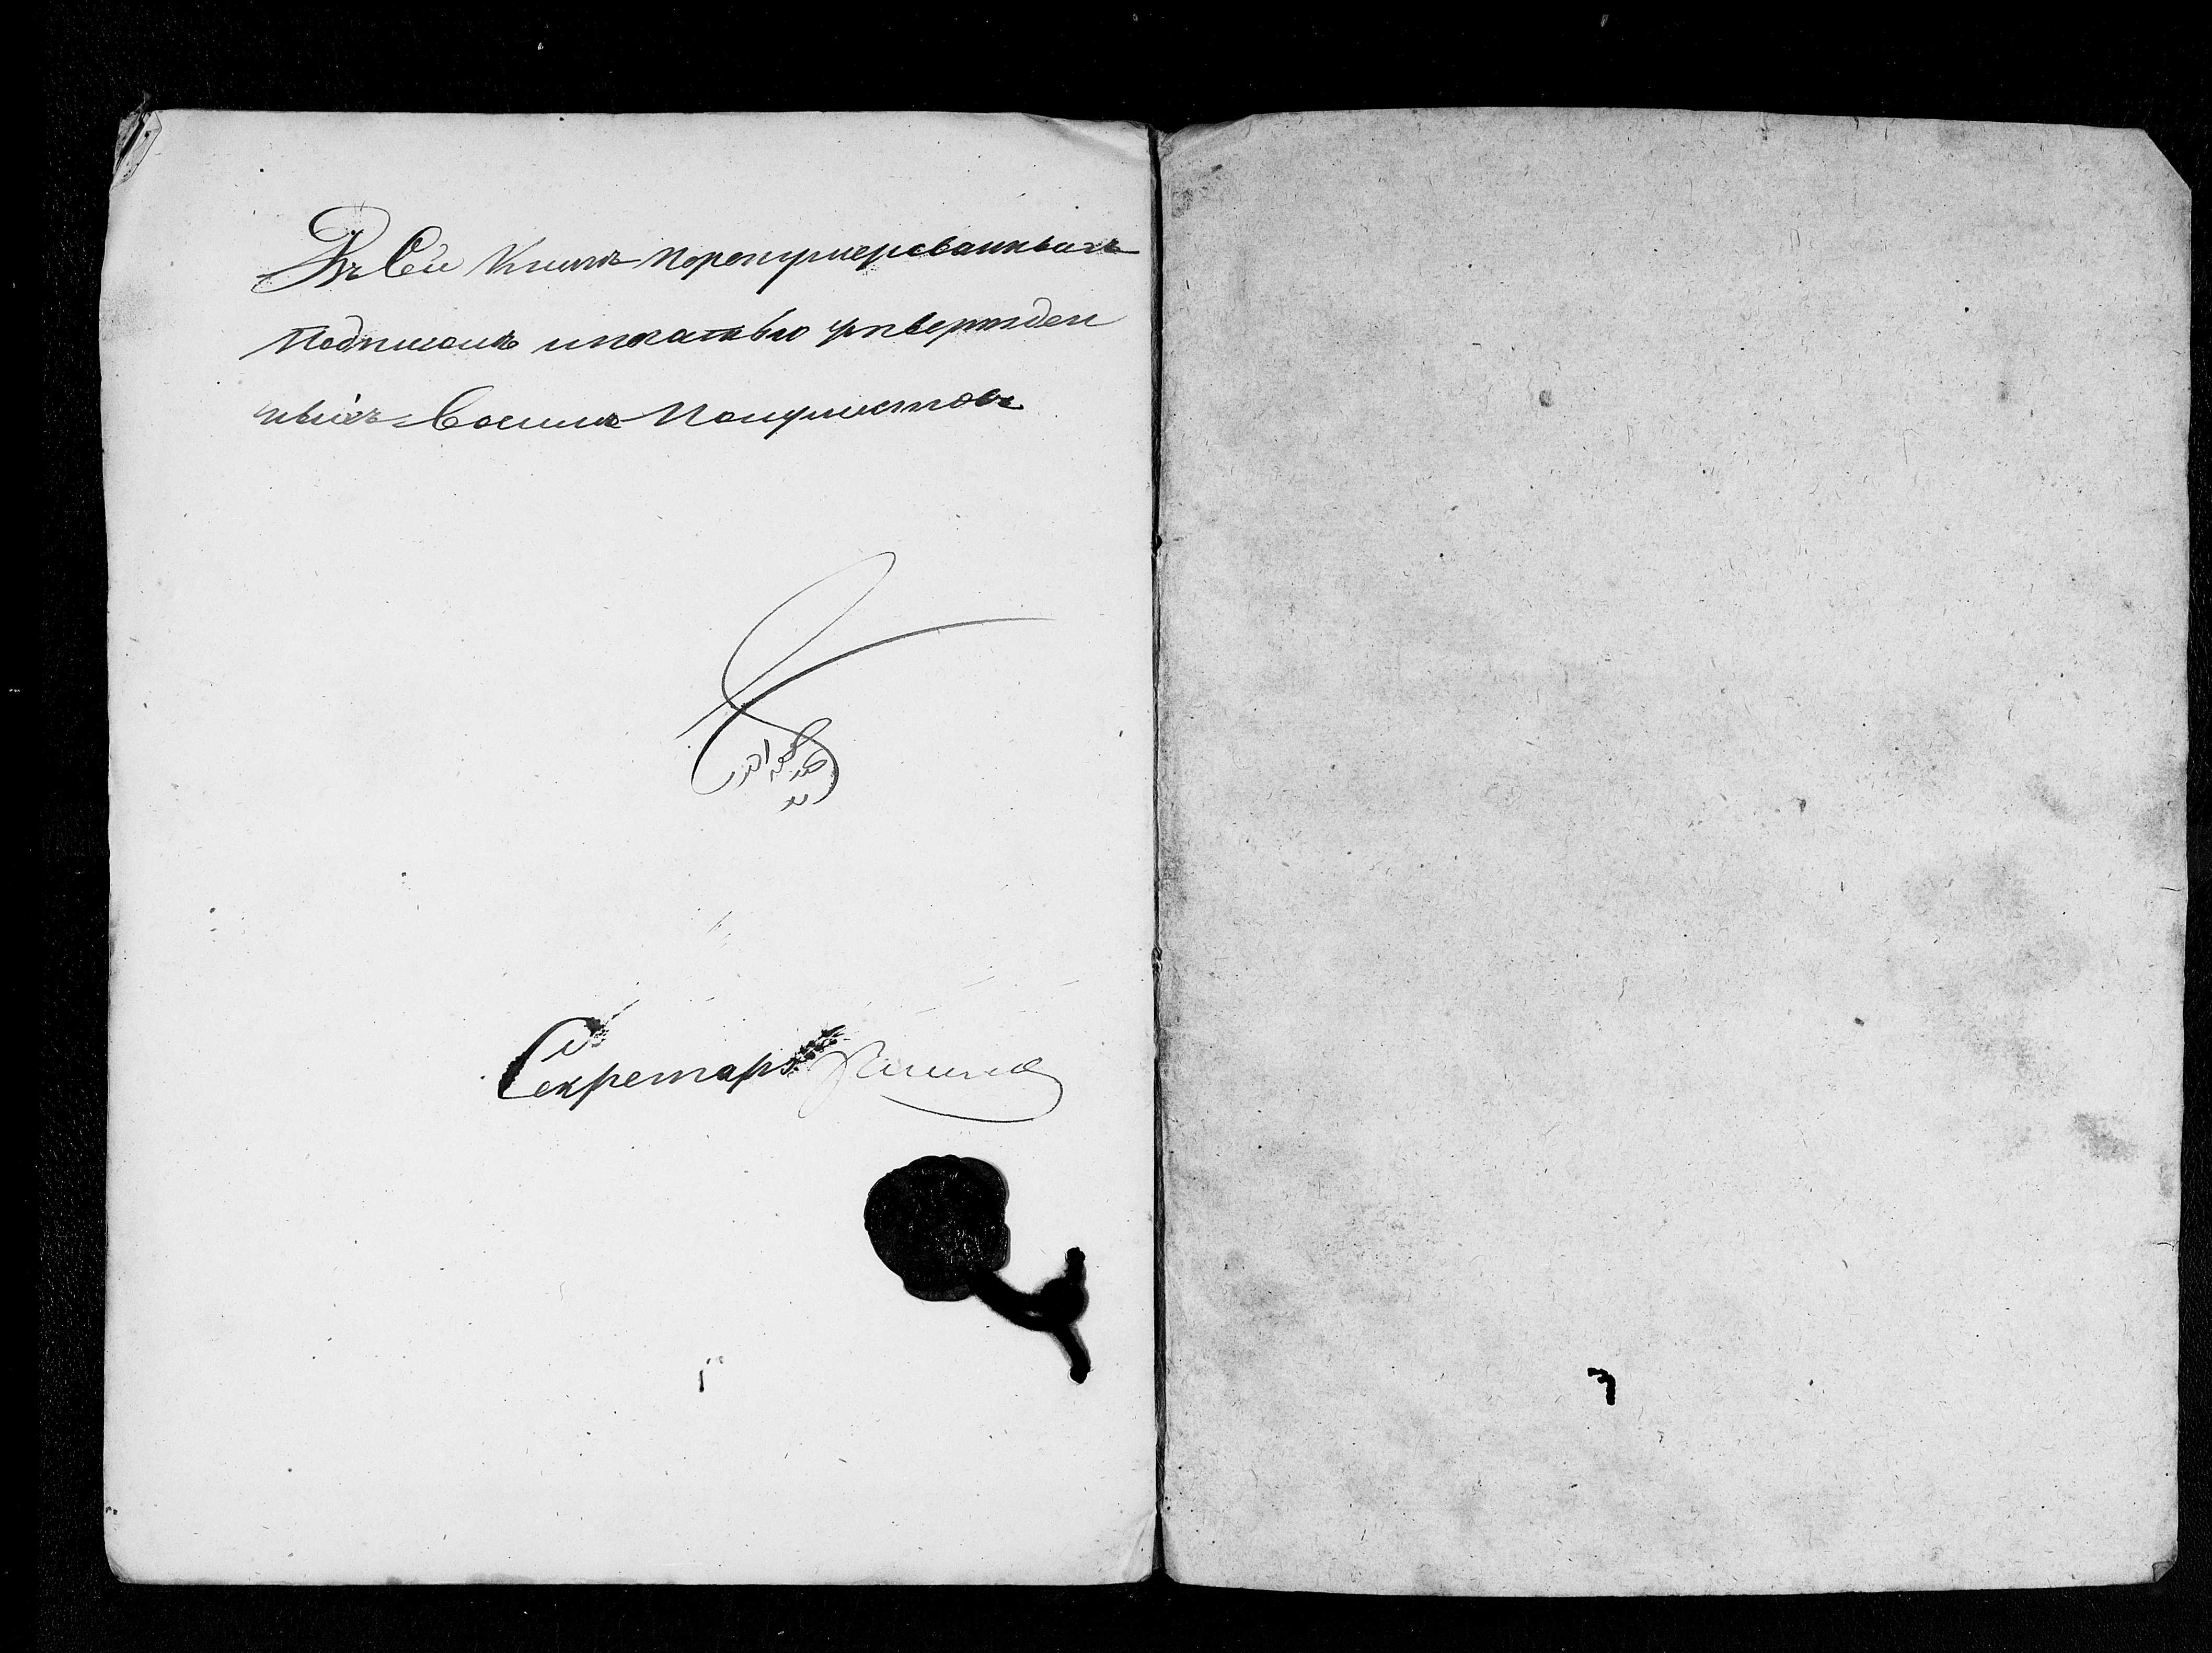 Въ Сей Книгѣ перенумерованныхъ
Подписомъ и печатью утвержден
ныхъ восемь полулистовъ
Секретарь